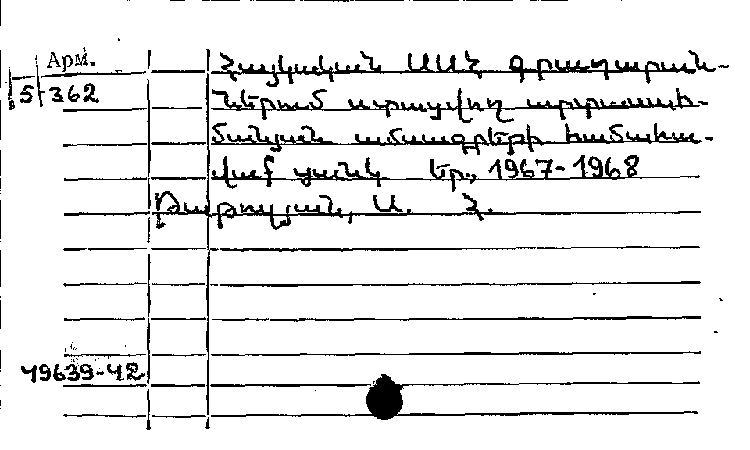 Арм.
5 362
Հայկական ՍՍՀ գրադարան-
ներում ստացվող արտասահ-
մանյան ամսագրերի համահա-
վաք ցանկ Եր., 1967-1968
Թաթուլյան, Ա. Հ.
49639-42